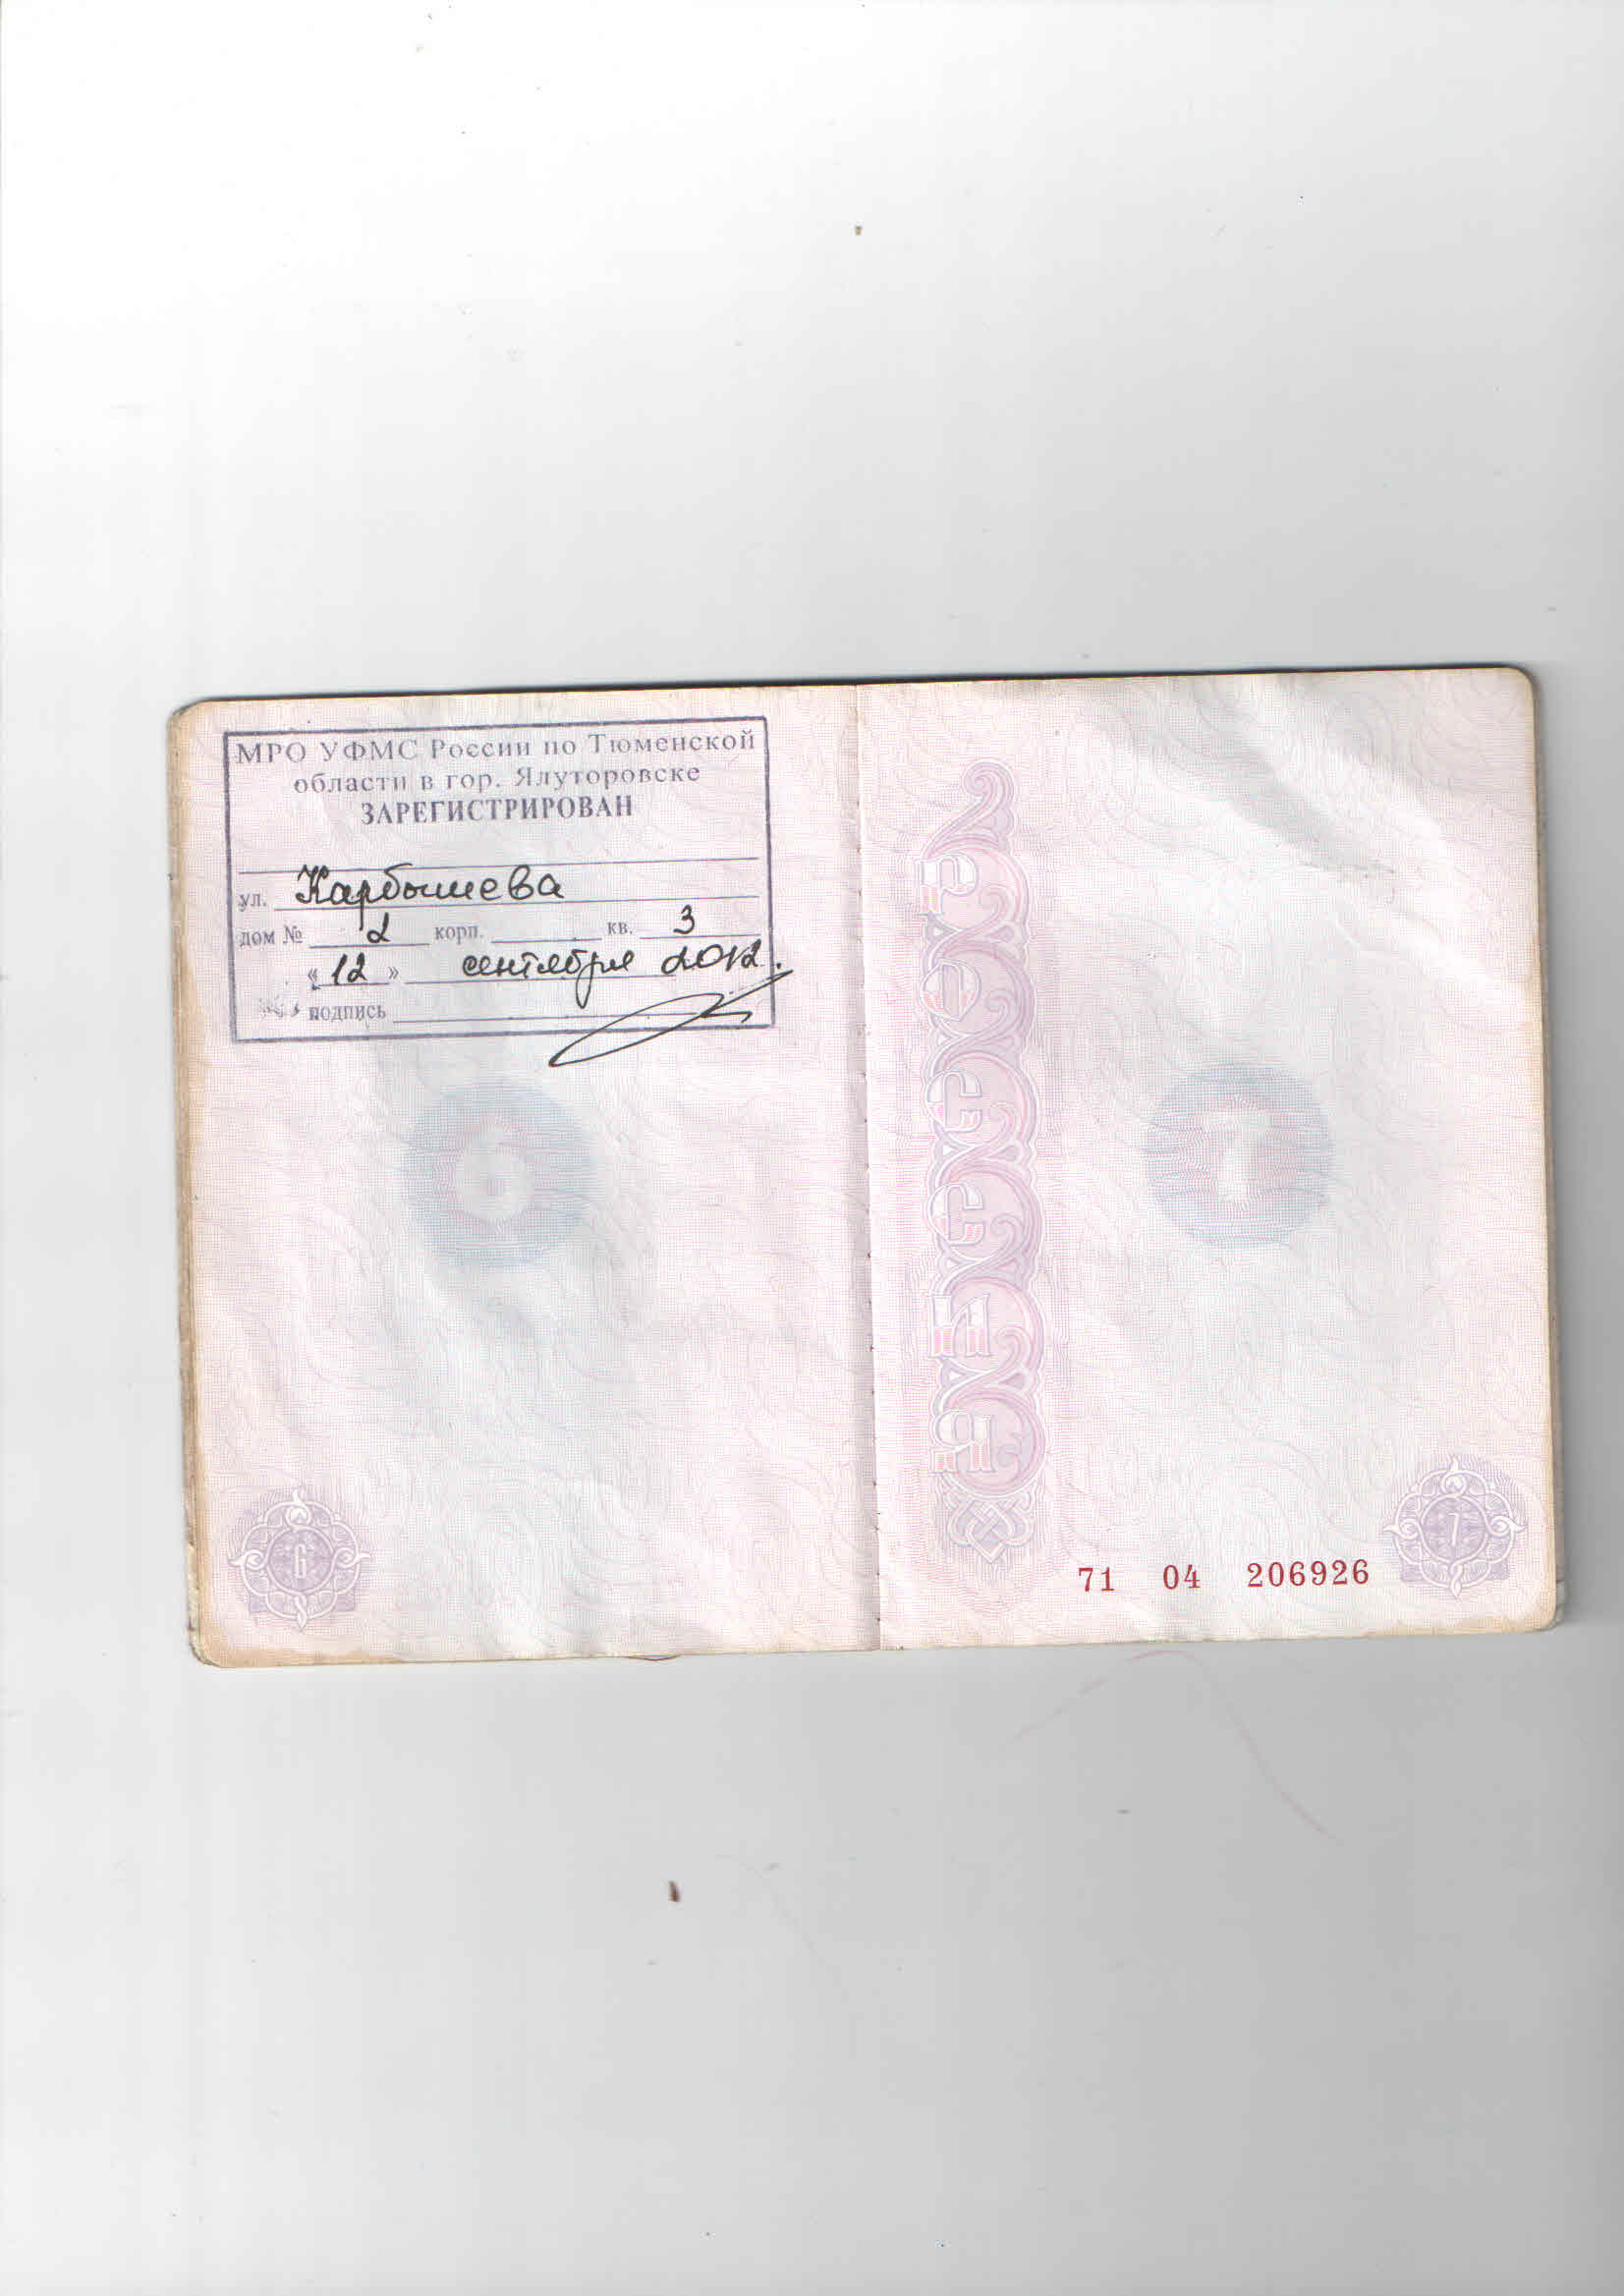 МРО УФМС России по Тюменской
области в гор. Ялуторовске
ЗАРЕГИСТРИРОВАН
ул. Карбышева
дом № 2 корп. кв. 3
« 12 » сентября 2012.
подпись
6
6
РОССИЯ
7
71 04 206926
7